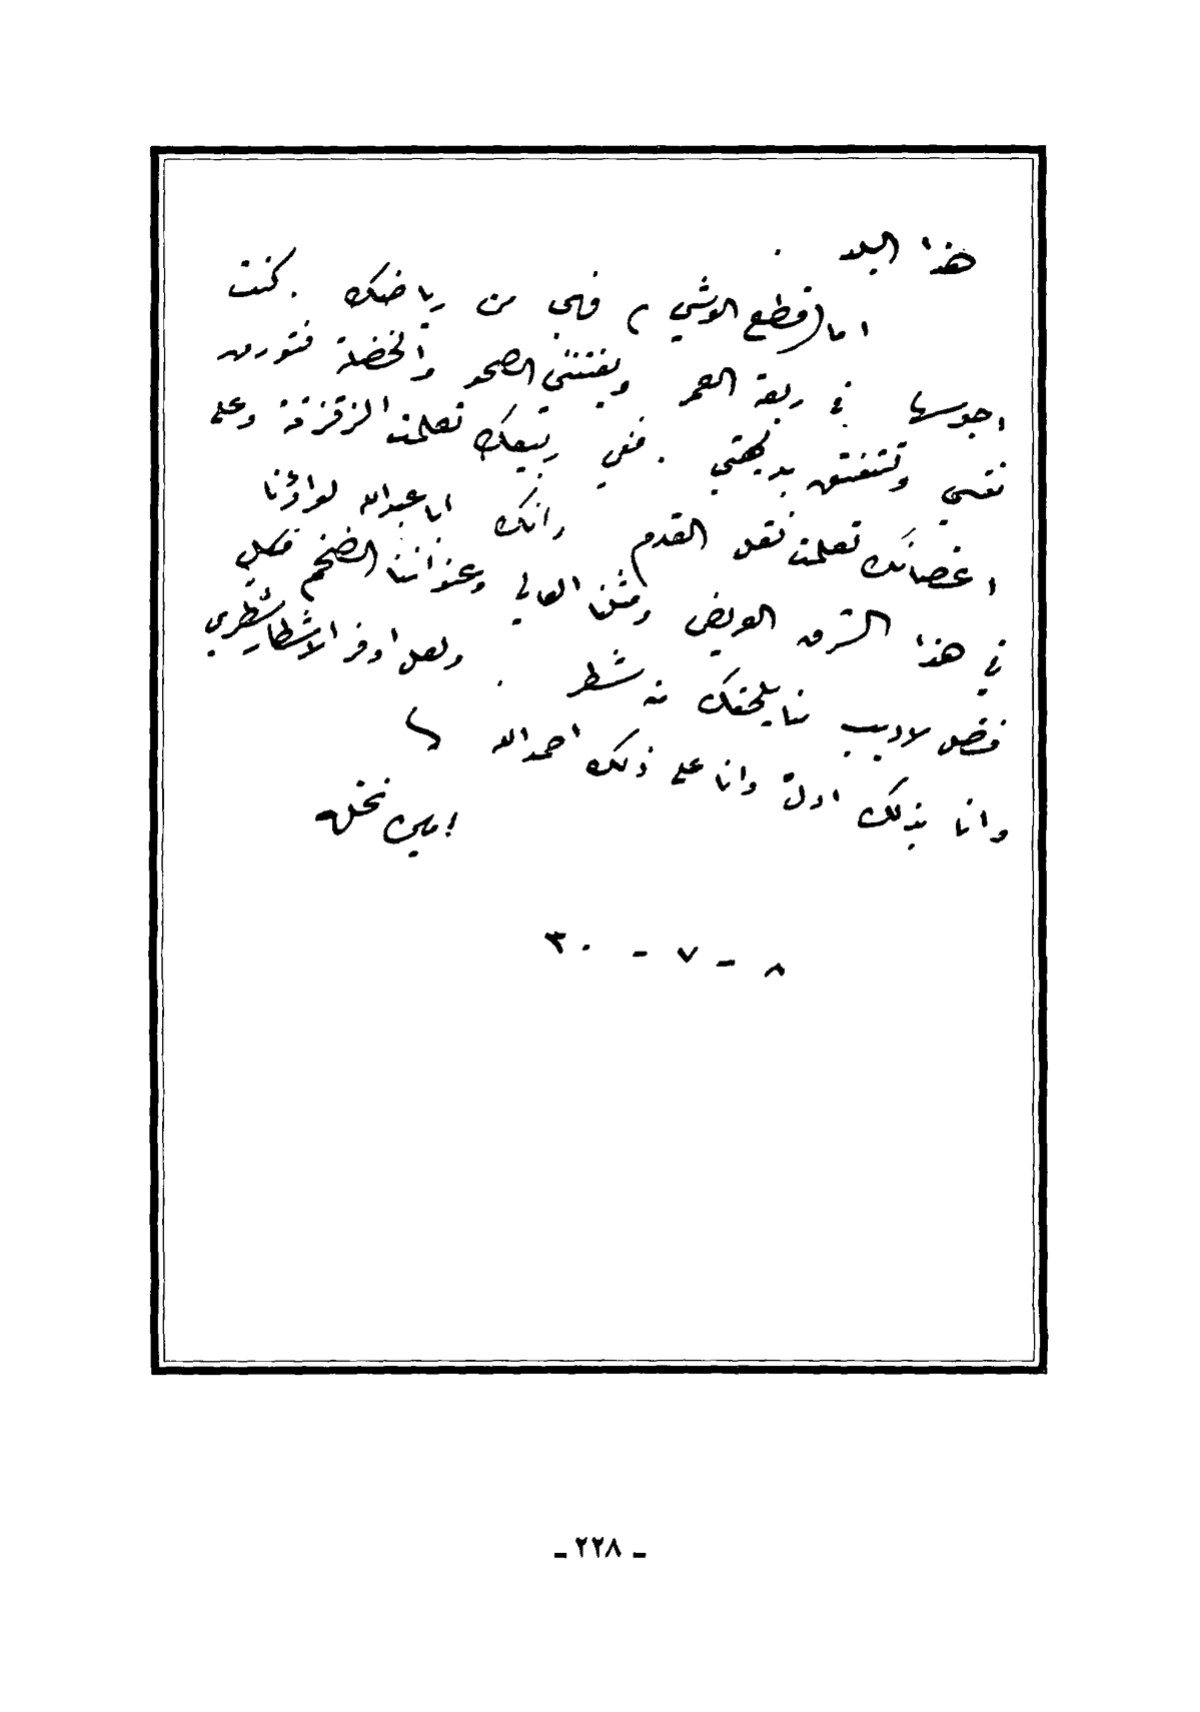 هذا البلد .
اما (قطع الوشي) فهي من رياضك . كنت
اجوسها في ربقة العمر ويفتنني الصحو والخضلة فتورق
نفسي وتتفتق بديهتي . ففي ربيعك تعلمت الزقزقة وعلى
اغصانك تعلمت نقل القدم وانك ابا عبدالله لواؤنا
في هذا الشرق العريض ومثلنا العالي وعنواننا الضخم فكل
فضل لاديب منا يلحقك منه شطر . ولعل اوفر الاشطار شطري
وانا بذلك ادل وانا على ذلك احمد الله
امين نخله
٨ - ٧ - ٣٠
ـ ٢٢٨ ـ